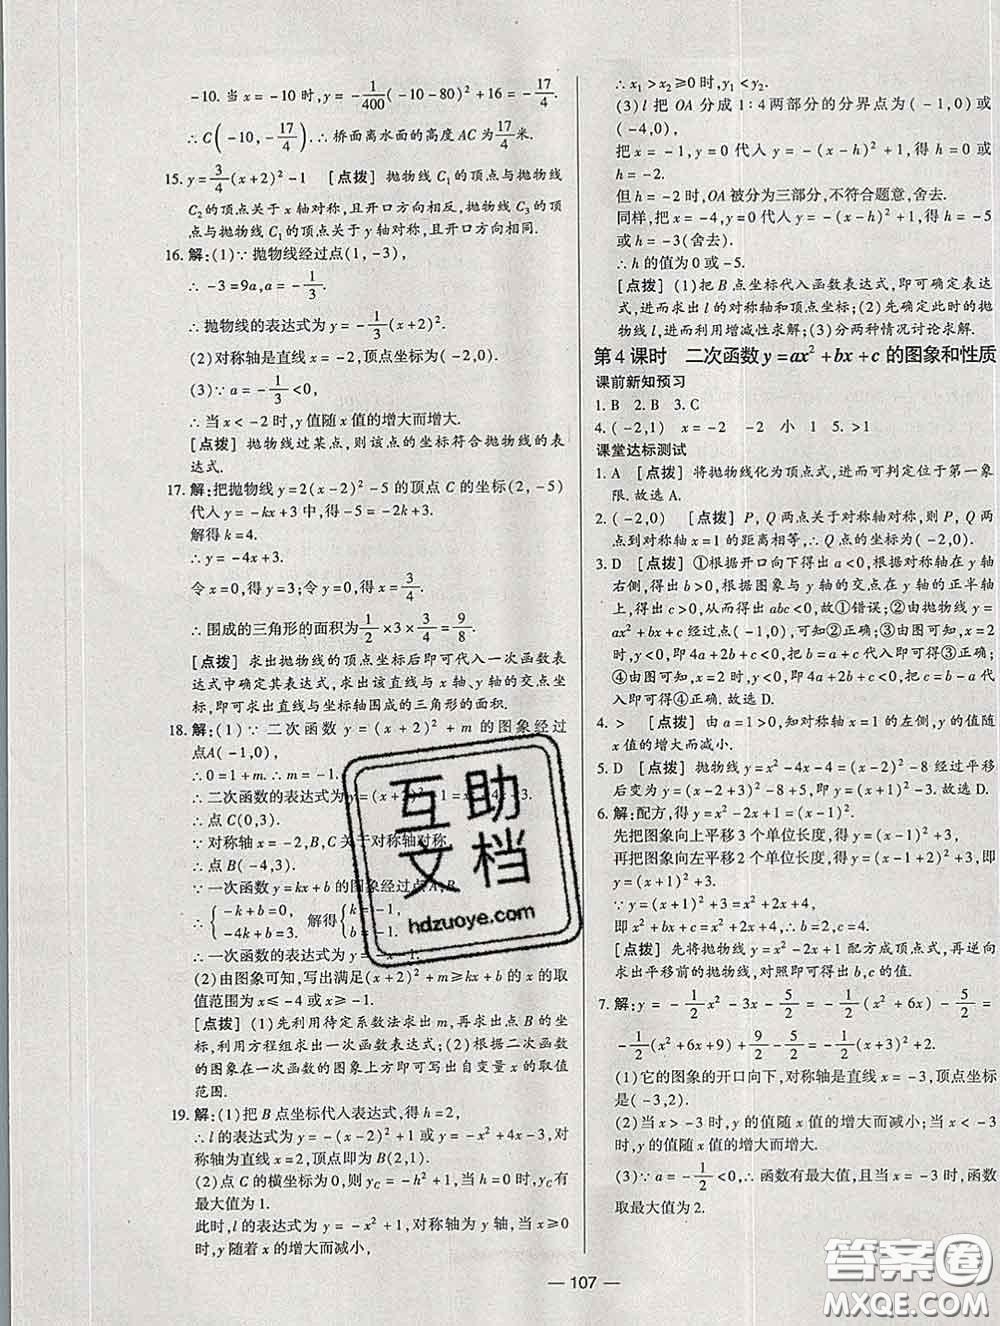 -10. 当 x=-10时, y=-1/400(-10-80)²+16=-17/4.
∴ C(-10, -17/4). ∴ 桥面离水面的高度 AC 为17/4米.
15. y=3/4(x+2)²-1 [点拨] 抛物线 C₁的顶点与抛物线
C₂的顶点关于 x 轴对称,且开口方向相反,抛物线 C₃的顶
点与抛物线 C₁的顶点关于 y 轴对称,且开口方向相同.
16. 解:(1)∵ 抛物线经过点(1,-3),
∴ -3=9a, a=-1/3.
∴ 抛物线的表达式为 y=-1/3(x+2)².
(2)对称轴是直线 x=-2,顶点坐标为(-2,0).
(3)∵ a=-1/3<0,
∴ 当 x<-2 时,y 值随 x 值的增大而增大.
[点拨] 抛物线过某点,则该点的坐标符合抛物线的表
达式.
17. 解:把抛物线 y=2(x-2)²-5 的顶点 C 的坐标(2,-5)
代入 y=-kx+3 中,得-5=-2k+3.
解得 k=4.
∴ y=-4x+3.
令 x=0,得 y=3;令 y=0,得 x=3/4.
∴ 围成的三角形的面积为1/2×3×3/4=9/8.
[点拨] 求出抛物线的顶点坐标后即可代入一次函数表
达式中确定其表达式,求出该直线与 x 轴、y 轴的交点坐
标,即可求出直线与坐标轴围成的三角形的面积.
18. 解:(1)∵ 二次函数 y=(x+2)²+m 的图象经过
点A(-1,0),
∴ 0=1+m. ∴ m=-1.
∴ 二次函数的表达式为 y=(x+2)²-1=x²+4x+3.
∴ 点 C(0,3).
∵ 对称轴 x=-2, B,C 关于对称轴对称,
∴ 点 B(-4,3).
∵ 一次函数 y=kx+b 的图象经过点 A,B,
∴ {-k+b=0, -4k+b=3. 解得{k=-1, b=-1.
∴ 一次函数的表达式为 y=-x-1.
(2)由图象可知,写出满足(x+2)²+m≥kx+b 的 x 的取
值范围为 x≤-4 或 x≥-1.
[点拨] (1)先利用待定系数法求出 m,再求出点 B 的坐
标,利用方程组求出一次函数表达式;(2)根据二次函数
的图象在一次函数的图象上方即可写出自变量 x 的取值
范围.
19. 解:(1)把 B 点坐标代入表达式,得 h=2,
∴ l 的表达式为 y=-(x-2)²+1 或 y=-x²+4x-3,对
称轴为直线 x=2,顶点即为 B(2,1).
(2)点 C 的横坐标为 0,则 y_C=-h²+1,当 h=0时,y_C有
最大值为 1.
此时,l 的表达式为 y=-x²+1,对称轴为 y 轴,当 x≥0
时,y 随着 x 的增大而减小,
∴ x₁>x₂≥0 时,y₁<y₂.
(3)l 把 OA 分成 1:4两部分的分界点为(-1,0)或
(-4,0),
把 x=-1,y=0代入 y=-(x-h)²+1,得 h=0或
h=-2.
但 h=-2时,OA被分为三部分,不符合题意,舍去.
同样,把 x=-4,y=0 代入 y=-(x-h)²+1,得 h=-5
或 h=-3(舍去).
∴ h 的值为 0 或-5.
[点拨] (1)把 B 点坐标代入函数表达式,即可确定表达
式,进而求出 l 的对称轴和顶点坐标;(2)先确定此时的抛
物线 l,进而利用增减性求解;(3)分两种情况讨论求解.
第 4 课时 二次函数 y=ax²+bx+c 的图象和性质
课前新知预习
1. B 2. B 3. C
4. (-2,1) x=-2 -2 小 1 5. >1
课堂达标测试
1. A [点拨] 将抛物线化为顶点式,进而可判定位于第一象
限.故选 A.
2. (-2,0) [点拨] P, Q 两点关于对称轴对称,则 P,Q 两
点到对称轴 x=1 的距离相等,∴ Q点的坐标为(-2,0).
3. D [点拨] ①根据开口向下得出 a<0,根据对称轴在 y 轴
右侧,得出 b>0,根据图象与 y 轴的交点在 y 轴的正半轴
上,得出 c>0,从而得出 abc<0,故①错误;②由抛物线 y=
ax²+bx+c 经过点(-1,0),可知②正确;③由图可知,x=2
时,y>0,即 4a+2b+c>0,把 b=a+c 代入即可得③正确;
④由图可知 x=2 时,y>0,即 4a+2b+c>0,把 c=b-a代
入即可得④正确.故选 D.
4. > [点拨] 由 a=1>0,知对称轴 x=1 的左侧,y 的值随
x 值的增大而减小.
5. D [点拨] 抛物线 y=x²-4x-4=(x-2)²-8 经过平移
后变为 y=(x-2+3)²-8+5,即 y=(x+1)²-3.故选 D.
6. 解:配方,得 y=x²-2x+1=(x-1)².
先把图象向上平移 3 个单位长度,得 y=(x-1)²+3,
再把图象向左平移2个单位长度,得 y=(x-1+2)²+3,
即 y=(x+1)²+3.
∵ y=(x+1)²+3=x²+2x+4,
即 x²+bx+c=x²+2x+4, ∴ b=2,c=4.
[点拨] 先将抛物线 y=x²-2x+1 配方成顶点式,再逆向
求出平移前的抛物线,对照即可得出 b,c 的值.
7. 解:y=-1/2x²-3x-5/2=-1/2(x²+6x)-5/2=
-1/2(x²+6x+9)+9/2-5/2=-1/2(x+3)²+2.
(1)它的图象的开口向下,对称轴是直线 x=-3,顶点坐标
是(-3,2).
(2)当 x>-3 时,y 的值随 x 值的增大而减小;当 x<-3
时,y 的值随 x 值的增大而增大.
(3)∵ a=-1/2<0,∴ 函数有最大值,且当 x=-3 时,函数
取最大值为 2.
— 107 —
互助
文档
hdzuoye.com
答案圈
MXQE.COM